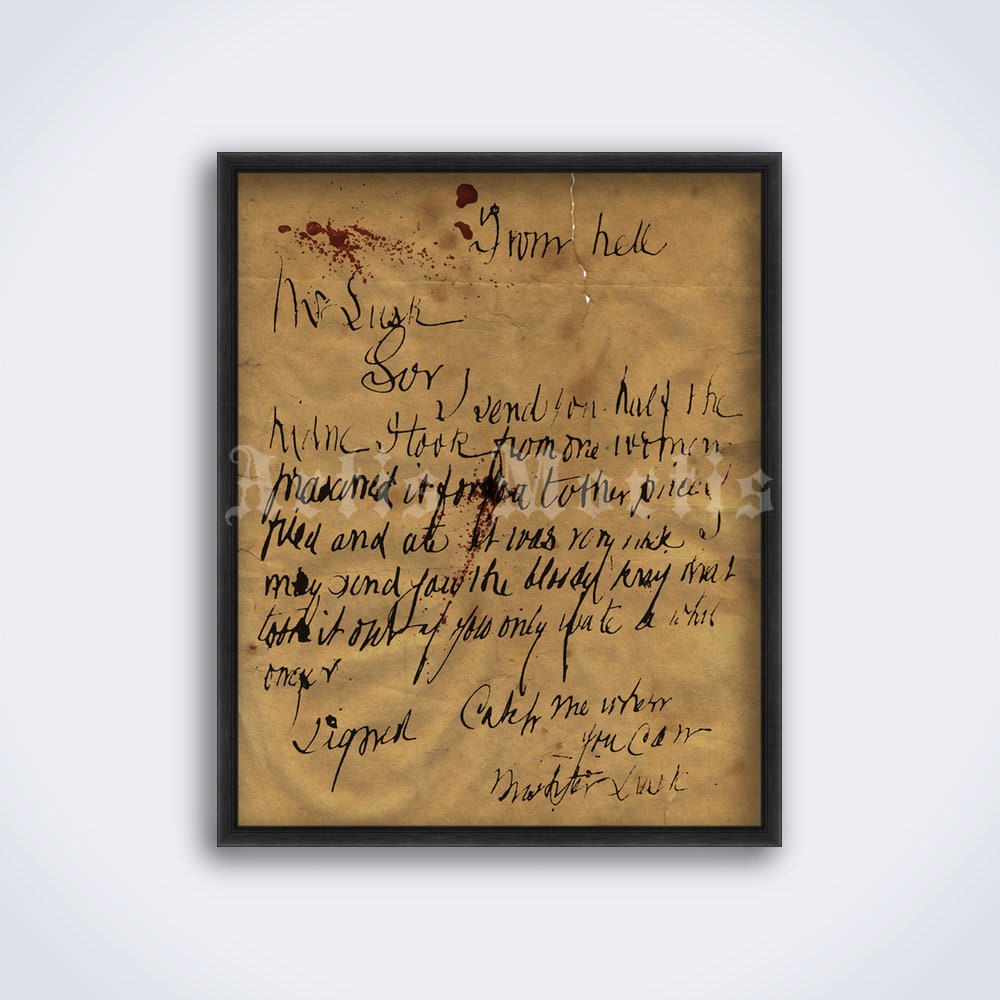 From hell
Mr Lusk
Sor
I send you half the
Kidne I took from one women
prasarved it for you tother piece I
fried and ate it was very nise I
may send you the bloody knif that
took it out if you only wate a whil
longer
signed
Catch me when
you Can
Mishter Lusk
Artis Mortis